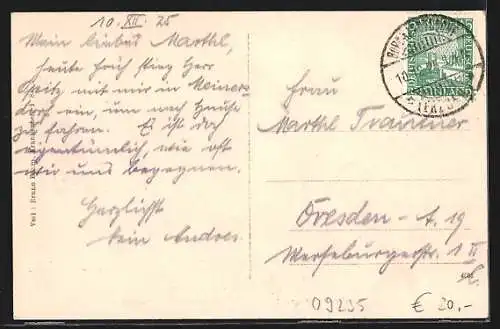 10. XII. 25
Mein liebes Marthl,
heute früh stieg Herr
Opitz mit mir in Meiners
dorf ein, um nach Hause
zu fahren. Es ist doch
eigentümlich, wie oft
wir uns begegnen.
Herzlichst
Dein Andres.
Verl.: Bruno
Frau
Marthl Trautner
Dresden - A. 19
Merseburgerstr. 1 II
09235
€ 20,-